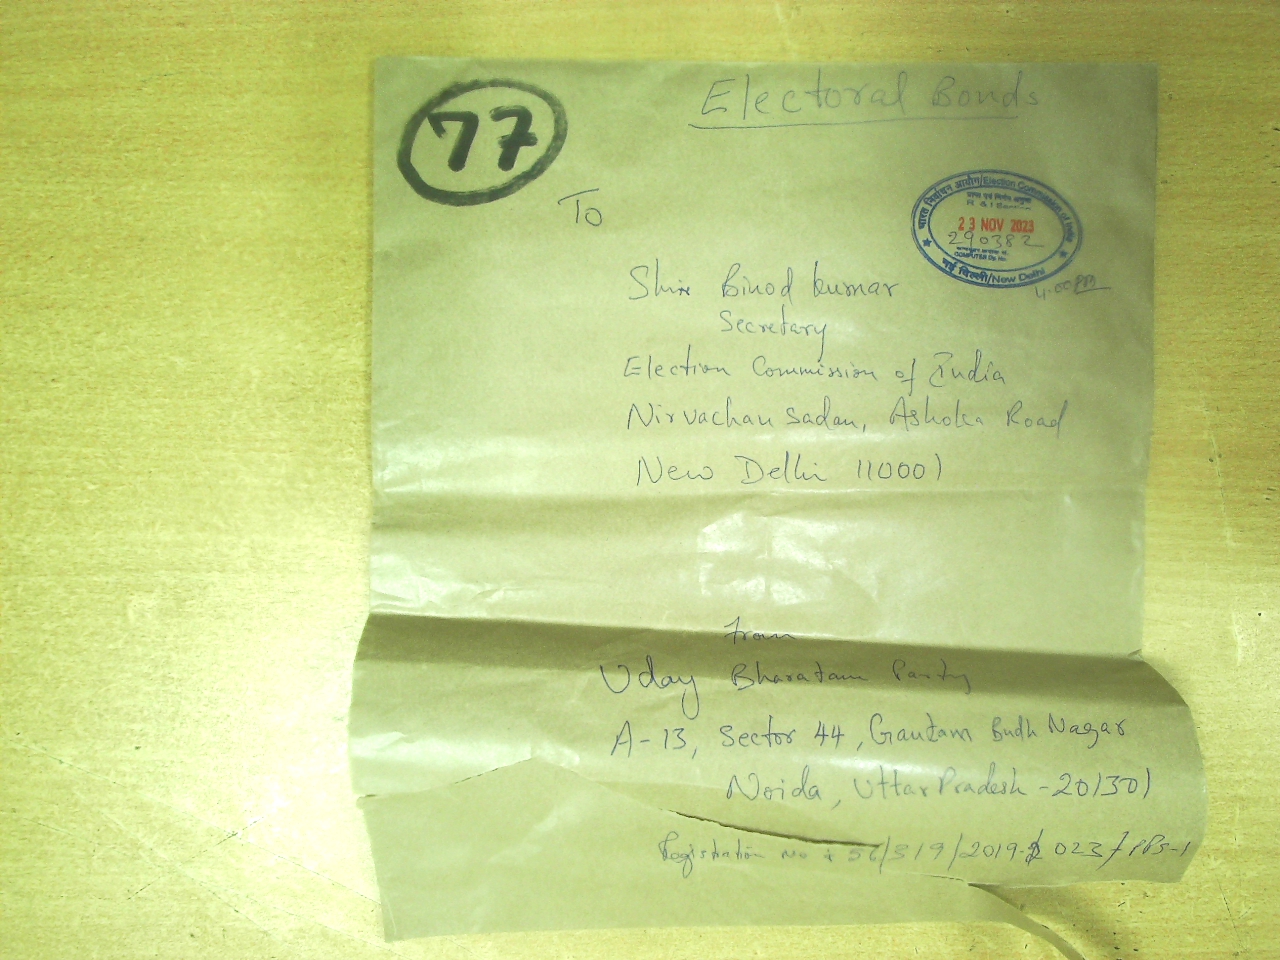 Electoral Bonds
77
To
भारत निर्वाचन आयोग/Election Commission of India
R & I
23 NOV 2023
290382
COMPUTER Dy. No.
नई दिल्ली/New Delhi
4.00 PM
Shri Binod kumar
Secretary
Election Commission of India
Nirvachan Sadan, Ashoka Road
New Delhi 110001
from
Uday Bharatam Party
A-13, Sector 44, Gautam Budh Nagar
Noida, Uttar Pradesh - 201301
Registration No : 56/319/2019-2023/PPS-1